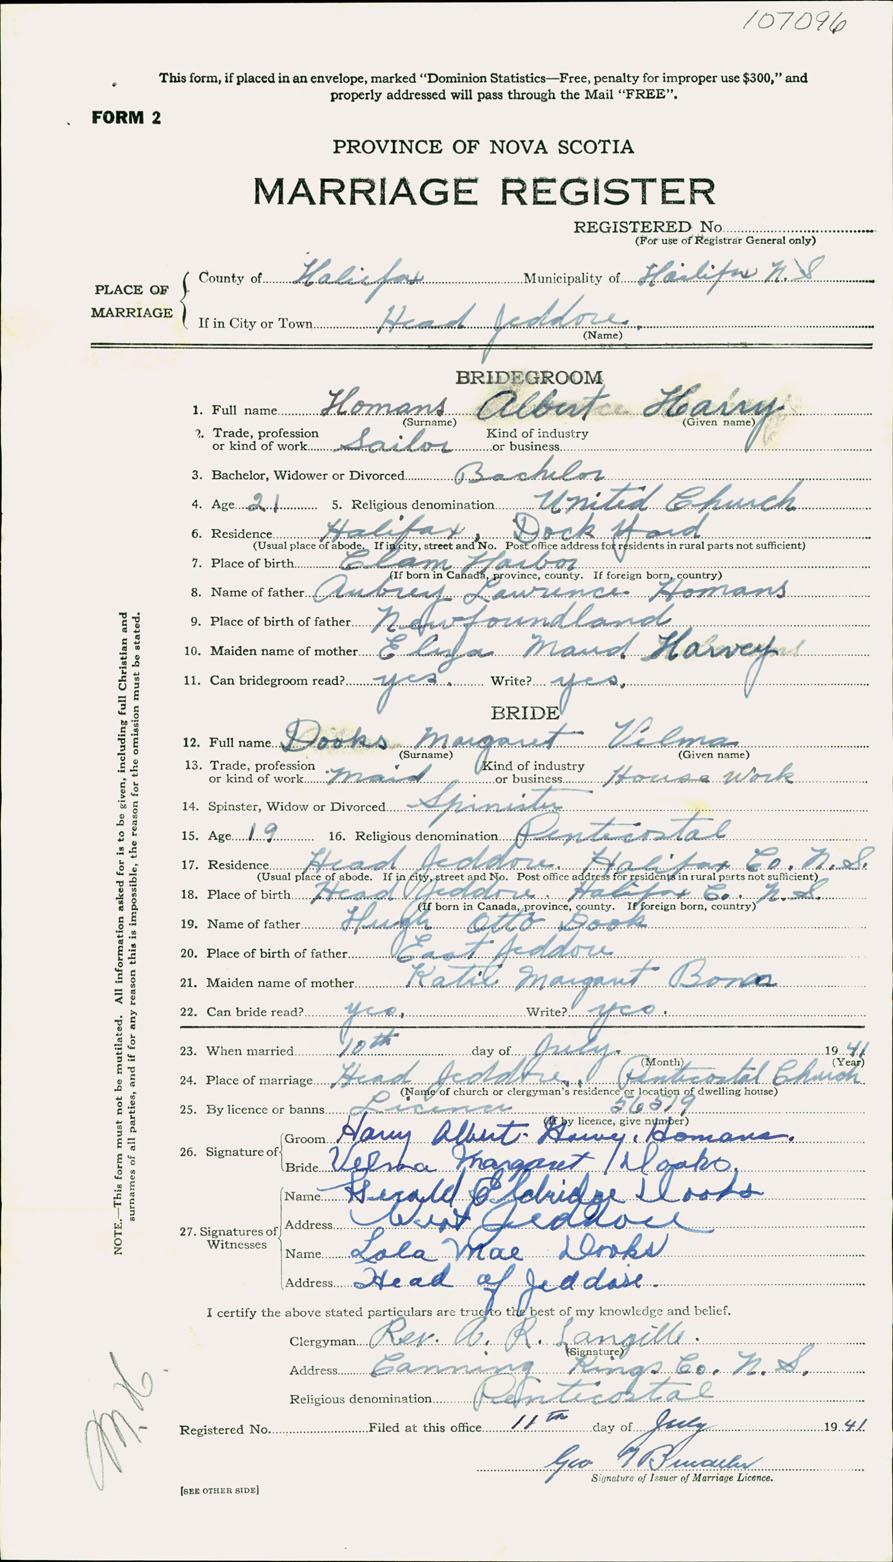 107096
This form, if placed in an envelope, marked "Dominion Statistics—Free, penalty for improper use $300," and
properly addressed will pass through the Mail "FREE".
FORM 2
PROVINCE OF NOVA SCOTIA
MARRIAGE REGISTER
REGISTERED No.
(For use of Registrar General only)
PLACE OF MARRIAGE
County of Halifax Municipality of Halifax N.S
If in City or Town Head Jeddore.
(Name)
BRIDEGROOM
1. Full name Homans Albert Harry
(Surname) (Given name)
2. Trade, profession or kind of work Sailor Kind of industry or business
3. Bachelor, Widower or Divorced Bachelor
4. Age 21 5. Religious denomination United Church
6. Residence Halifax, Dock Yard
(Usual place of abode. If in city, street and No. Post office address for residents in rural parts not sufficient)
7. Place of birth Clam Harbor
(If born in Canada, province, county. If foreign born, country)
8. Name of father Aubrey Lawrence Homans
9. Place of birth of father Newfoundland
10. Maiden name of mother Eliza Maud Harvey
11. Can bridegroom read? yes. Write? yes.
BRIDE
12. Full name Dooks Margaret Velma
(Surname) (Given name)
13. Trade, profession or kind of work maid Kind of industry or business House Work
14. Spinster, Widow or Divorced Spinister
15. Age 19 16. Religious denomination Penticostal
17. Residence Head Jeddore. Halifax Co. N.S.
(Usual place of abode. If in city, street and No. Post office address for residents in rural parts not sufficient)
18. Place of birth Head Jeddore. Halifax Co. N.S.
(If born in Canada, province, county. If foreign born, country)
19. Name of father Hugh Otto Dook
20. Place of birth of father East Jeddore
21. Maiden name of mother Katie Margaret
22. Can bride read? yes. Write? yes.
23. When married 10th day of July. 1941
(Month) (Year)
24. Place of marriage Head Jeddore, Penticostal Church
(Name of church or clergyman's residence or location of dwelling house)
25. By licence or banns Licence 56519
(If by licence, give number)
26. Signature of
Groom Harry Albert Homans.
Bride Velma Margaret Dooks.
27. Signatures of Witnesses
Name Gerald Eldridge Dooks
Address West Jeddore
Name Lola Mae Dooks
Address Head of Jeddore.
I certify the above stated particulars are true to the best of my knowledge and belief.
Clergyman Rev. A. R. Langille.
(Signature)
Address Canning Kings Co. N.S.
Religious denomination Penticostal
Registered No. Filed at this office 11th day of July 1941
Geo
Signature of Issuer of Marriage Licence.
[SEE OTHER SIDE]
NOTE.—This form must not be mutilated. All information asked for is to be given, including full Christian and
surnames of all parties, and if for any reason this is impossible, the reason for the omission must be stated.